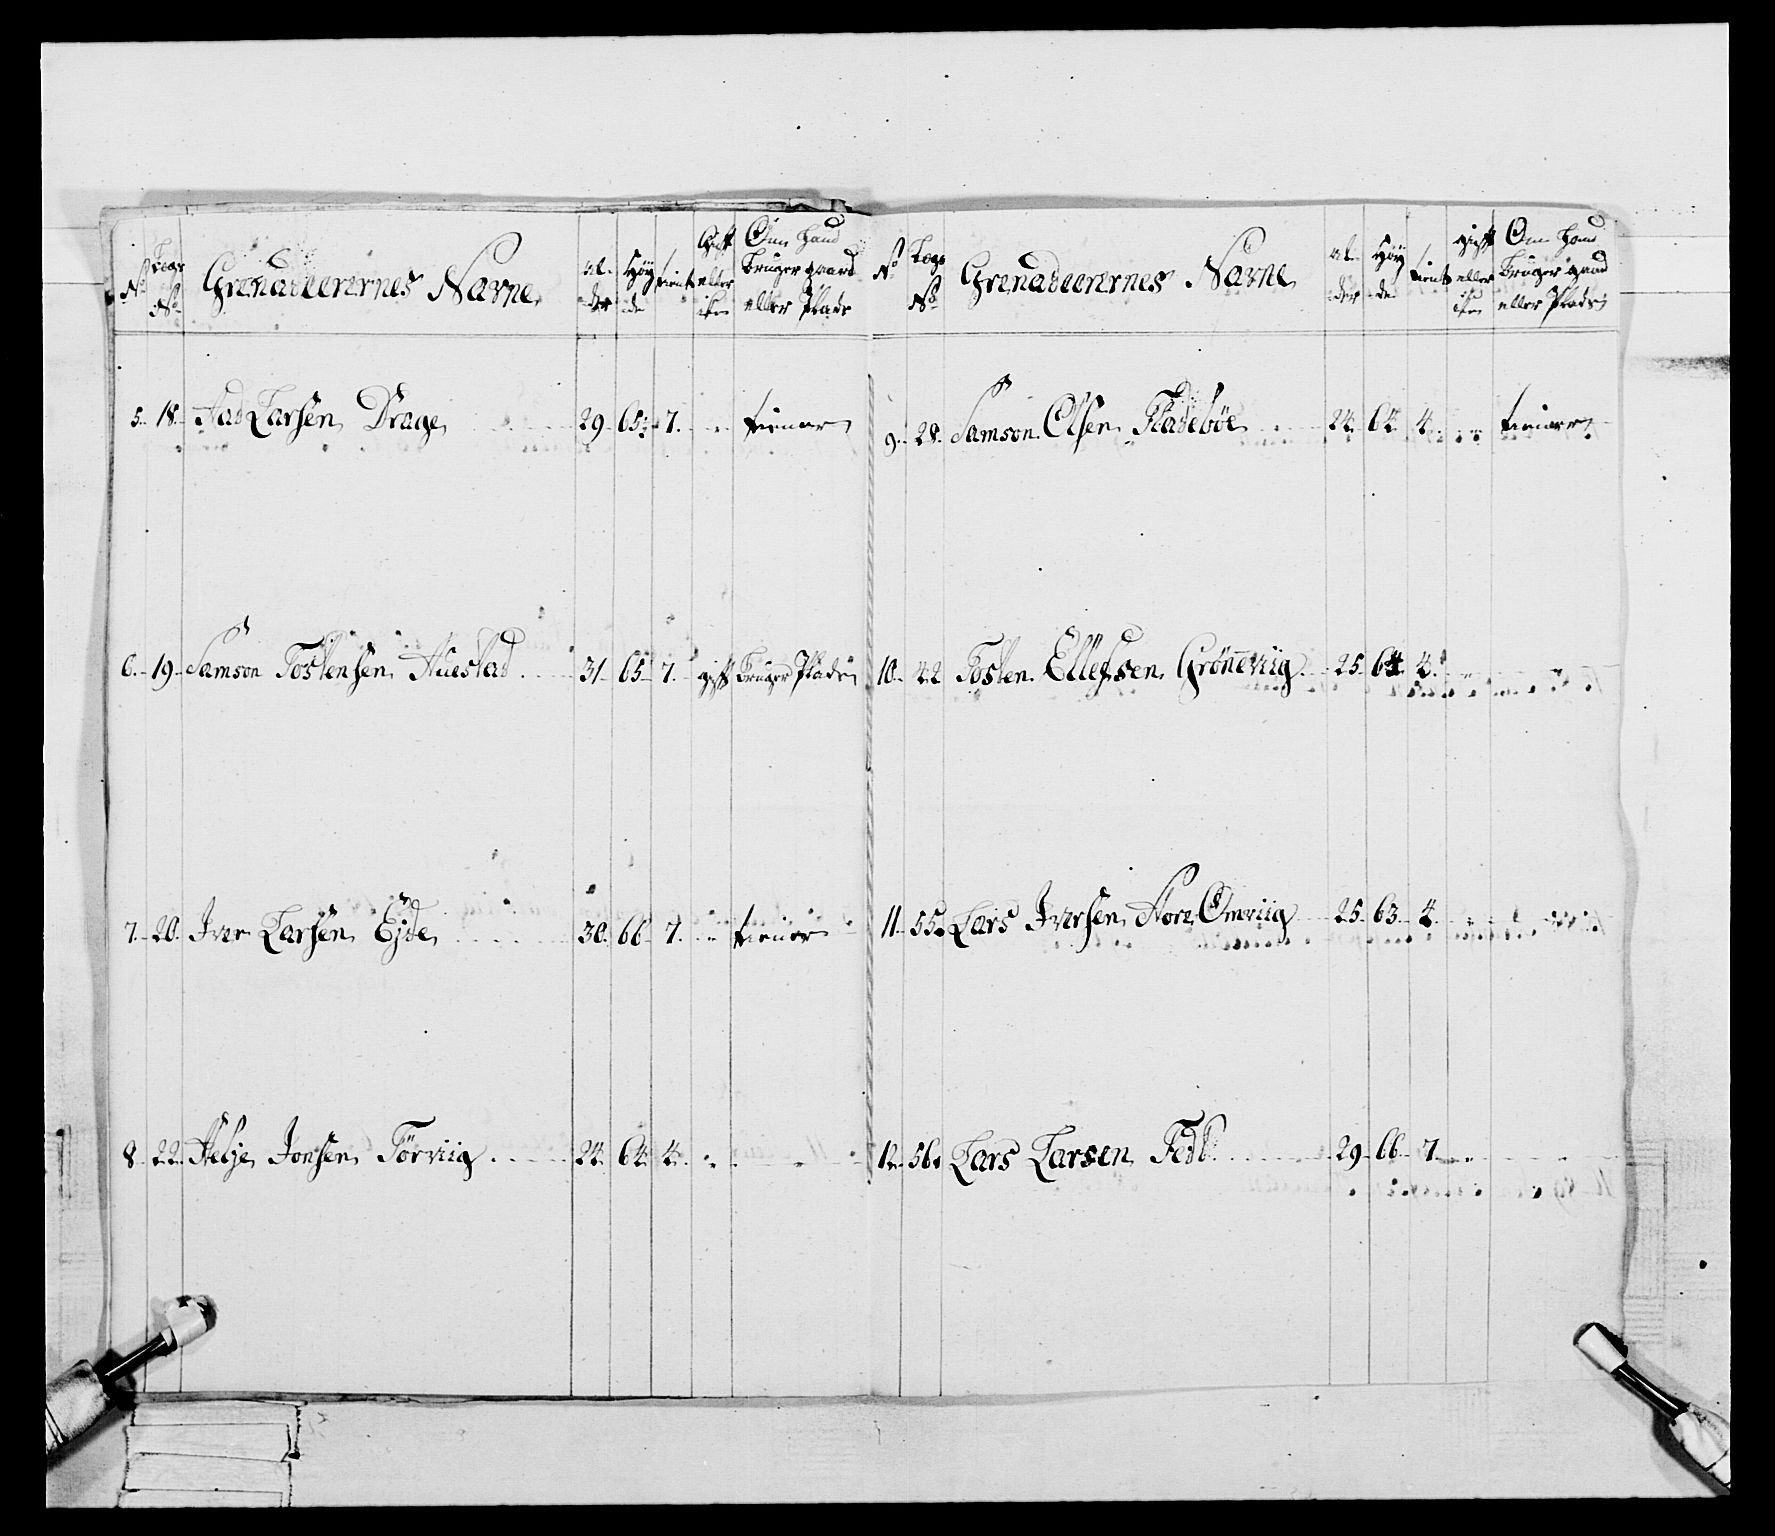 No Lægs No Grenadeerernes Navne Alder Høyde tient Gift eller iken Om hand bruger gaard eller Plads
5. 18. Aad Larsen Drage 29 65½ 7. tiener
6. 19. Samson Tostensen Auestad 31 65 7. gift bruger Plads
7. 20. Iver Larsen Ejde 30. 66 7. tiener
8. 22. Helje Jonsen Törviig 24. 64. 4.
No Lægs No Grenadeerernes Navne Alder Høyde tient gift eller iken Om hand bruger gaard eller Plads
9. 28. Samson Olsen Fladeböe 24. 64. 4. tiener
10. 42 Tosten Ellefsen Gröneviig 25. 64. 4.
11. 55. Lars Iversen Store Omviig 25. 63. 4.
12. 56. Lars Larsen Fedt 29. 66 7.